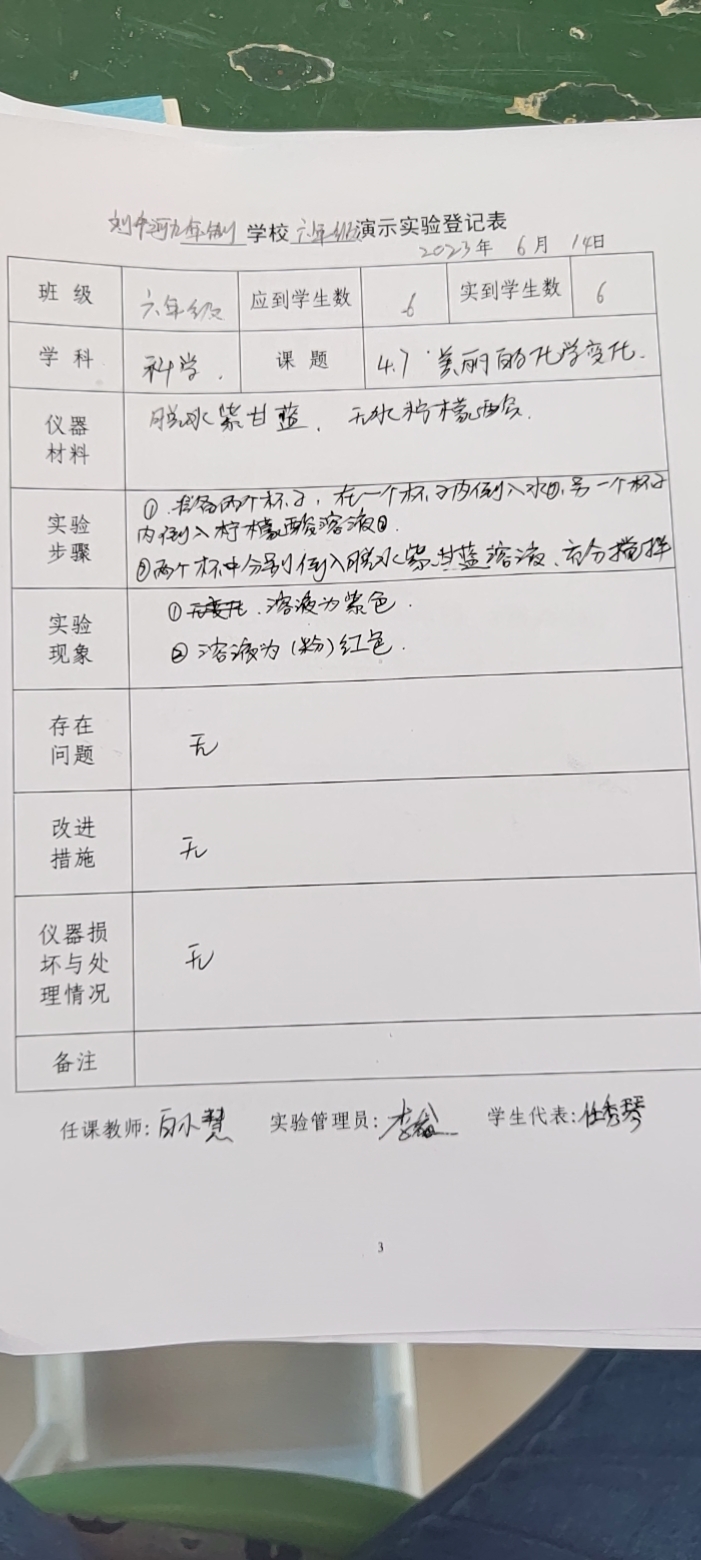 刘千河九年制学校六年级演示实验登记表
2023年 6月 14日
班级 六年级 应到学生数 6 实到学生数 6
学科 科学. 课题 4.7 美丽的化学变化.
仪器材料 脱水紫甘蓝. 无水柠檬酸.
实验步骤 ①.准备两个杯子, 在一个杯子内倒入水①,另一个杯子
内倒入柠檬酸溶液②.
②两个杯中分别倒入脱水紫甘蓝溶液、充分搅拌
实验现象 ①无变化.溶液为紫色.
②溶液为(粉)红色.
存在问题 无
改进措施 无
仪器损坏与处理情况 无
备注
任课教师:白小慧 实验管理员: 学生代表:任秀琴
3